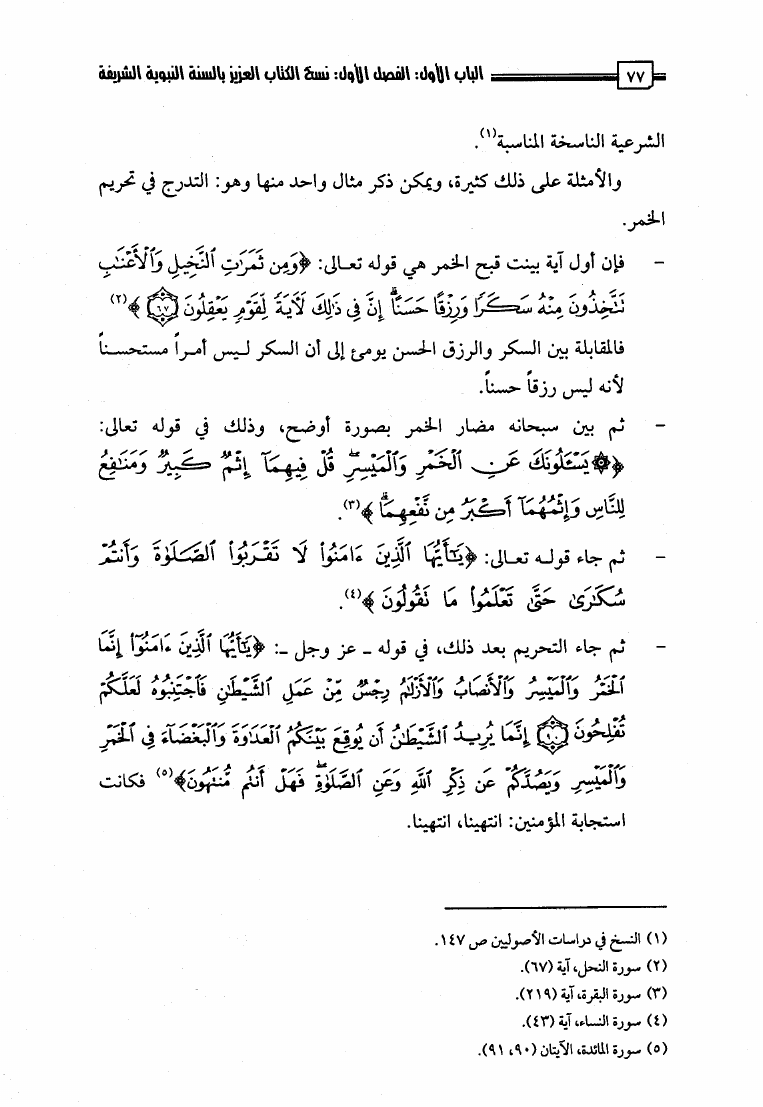 ٧٧ الباب الأول: الفصل الأول: نسخ الكتاب العزيز بالسنة النبوية الشريفة
الشرعية الناسخة المناسبة(١).
والأمثلة على ذلك كثيرة، ويمكن ذكر مثال واحد منها وهو: التدرج في تحريم
الخمر.
- فإن أول آية بينت قبح الخمر هي قوله تعالى: ﴿وَمِن ثَمَرَٰتِ ٱلنَّخِيلِ وَٱلْأَعْنَٰبِ
تَتَّخِذُونَ مِنْهُ سَكَرًا وَرِزْقًا حَسَنًا ۗ إِنَّ فِى ذَٰلِكَ لَءَايَةً لِّقَوْمٍ يَعْقِلُونَ ٦٧﴾(٢)
فالمقابلة بين السكر والرزق الحسن يومئ إلى أن السكر ليس أمراً مستحسناً
لأنه ليس رزقاً حسناً.
- ثم بين سبحانه مضار الخمر بصورة أوضح، وذلك في قوله تعالى:
﴿۞ يَسْـَٔلُونَكَ عَنِ ٱلْخَمْرِ وَٱلْمَيْسِرِ ۖ قُلْ فِيهِمَآ إِثْمٌ كَبِيرٌ وَمَنَٰفِعُ
لِلنَّاسِ وَإِثْمُهُمَآ أَكْبَرُ مِن نَّفْعِهِمَا ۗ﴾(٣).
- ثم جاء قوله تعالى: ﴿يَٰٓأَيُّهَا ٱلَّذِينَ ءَامَنُوا۟ لَا تَقْرَبُوا۟ ٱلصَّلَوٰةَ وَأَنتُمْ
سُكَٰرَىٰ حَتَّىٰ تَعْلَمُوا۟ مَا تَقُولُونَ﴾(٤).
- ثم جاء التحريم بعد ذلك، في قوله ـ عز وجل ـ: ﴿يَٰٓأَيُّهَا ٱلَّذِينَ ءَامَنُوٓا۟ إِنَّمَا
ٱلْخَمْرُ وَٱلْمَيْسِرُ وَٱلْأَنصَابُ وَٱلْأَزْلَٰمُ رِجْسٌ مِّنْ عَمَلِ ٱلشَّيْطَٰنِ فَٱجْتَنِبُوهُ لَعَلَّكُمْ
تُفْلِحُونَ ٩٠ إِنَّمَا يُرِيدُ ٱلشَّيْطَٰنُ أَن يُوقِعَ بَيْنَكُمُ ٱلْعَدَٰوَةَ وَٱلْبَغْضَآءَ فِى ٱلْخَمْرِ
وَٱلْمَيْسِرِ وَيَصُدَّكُمْ عَن ذِكْرِ ٱللَّهِ وَعَنِ ٱلصَّلَوٰةِ ۖ فَهَلْ أَنتُم مُّنتَهُونَ﴾(٥) فكانت
استجابة المؤمنين: انتهينا، انتهينا.
(١) النسخ في دراسات الأصوليين ص ١٤٧.
(٢) سورة النحل، آية (٦٧).
(٣) سورة البقرة، آية (٢١٩).
(٤) سورة النساء، آية (٤٣).
(٥) سورة المائدة، الآيتان (٩٠، ٩١).